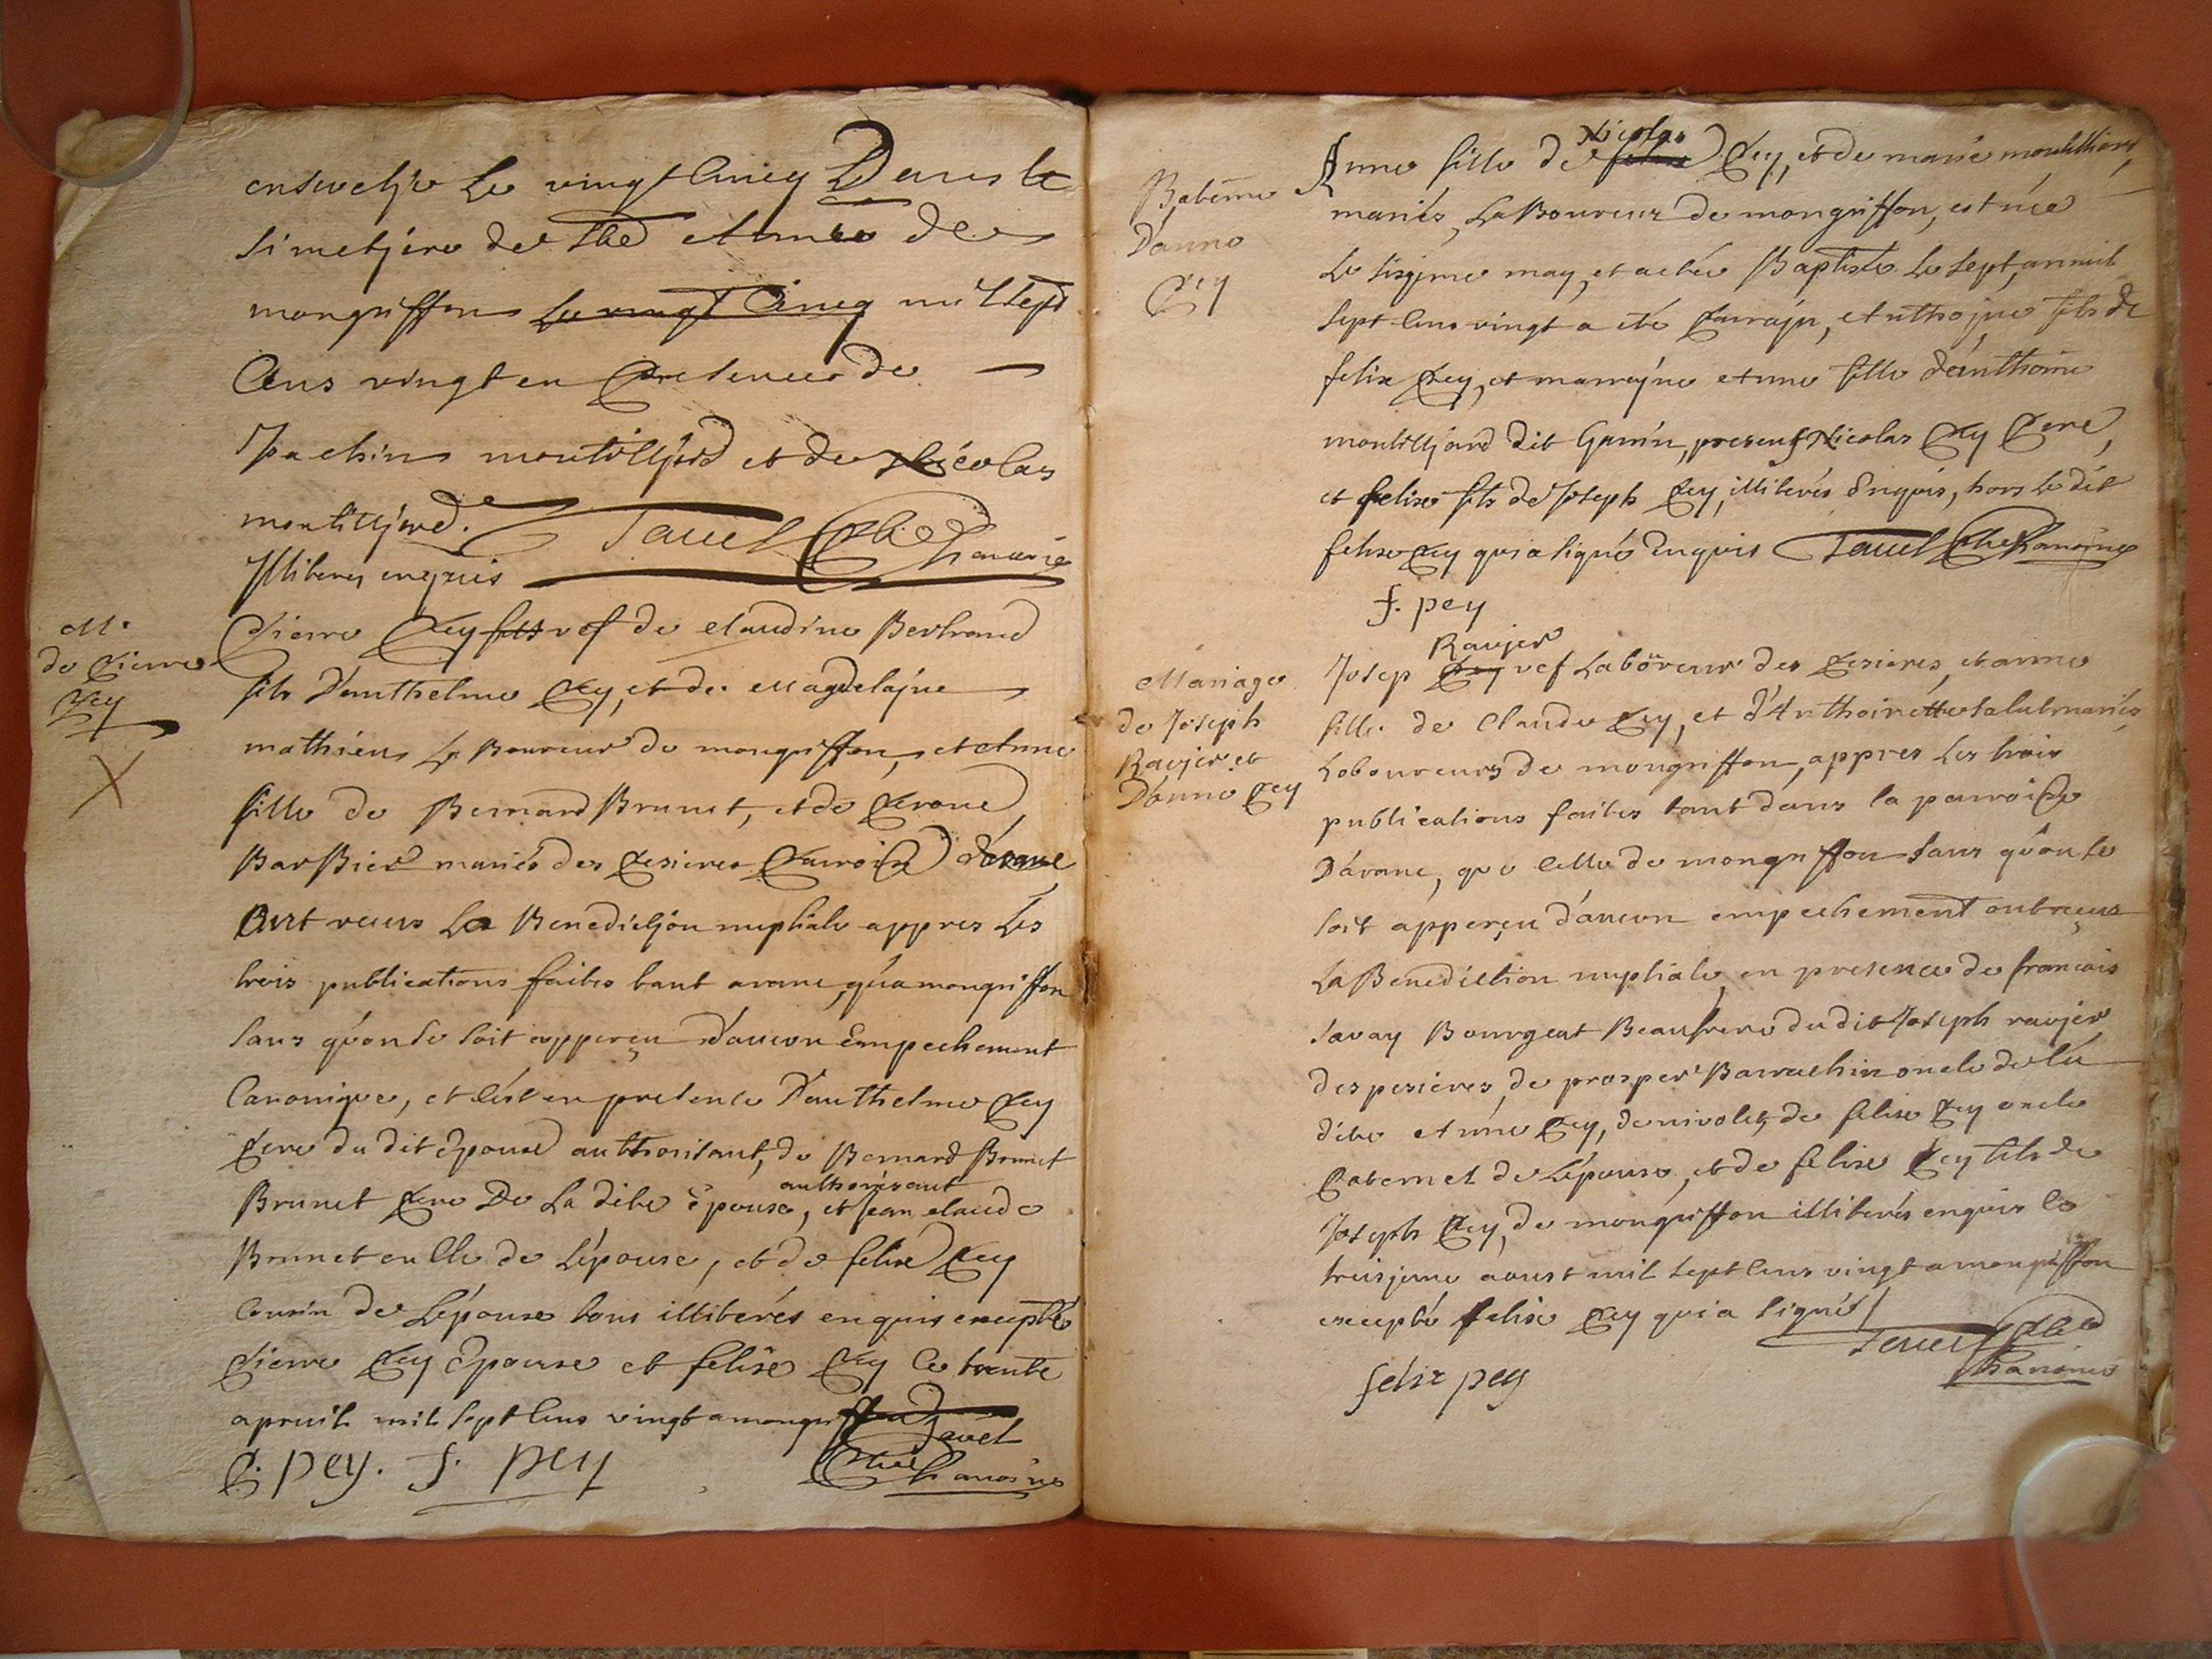 ensevelje le vingt Cincq Dans le
Simetjere de Sté Anne de
mongriffon le vingt Cincq mil sept
Cens vingt en presence de
Joachim montilljerd et de Nicolas
montilljerd.
Illiterez enquis Tavel Pbre Chanoine
M.
de pierre
pey
X
Pierre pey fils vef de claudine Bertrand
fils d'anthelme pey, et de Magdelajne
mathieu La Boureur de mongriffon, et Anne
fille de Bernard Brunet, et de perone
BarBier mariés des pesieres parroisse d'arane
Ont receus La Benedictjon nuptiale appres Les
trois publications faites tant arane, qu'a mongriffon
sans qu'on se soit apperçeu d'aucun Empechement
Canonique, et c'est en presence d'anthelme pey
pere du dit Epoux authorisant, de Bernard Brunet
authorisant
Brunet pere De La dite épouse, et Jean claude
Brunet de L'épouse, et de felix pey
Cousin de L'épouse tous illiterés enquis excepté
pierre pey Epoux et felix pey ce trente
apruil mil sept cens vingt a mongriffon
Tavel
Pbre Chanoine
P. pey. f. pey
Batême
d'anne
pey
Nicolas
Anne fille de felix pey, et de marie montilliard
mariés, LaBoureur de mongriffon, est née
Le sizjeme may, et a eté Baptisée Le sept, an mil
sept cens vingt a eté parrajn, Anthojne fils de
felix pey, et marrejne Anne fille d'anthoine
montilljard dit Garin, presens Nicolas pey pere,
et felix fils de Joseph pey, illiterés Enquis, hors le dit
felix pey qui a signé Enquis Tavel Pbre Chanoine
f. pey
Mariage
de Joseph
Ravjer et
D'anne pey
Ravjer
Josep pey vef Laboureur des pesieres, et anne
fille de Claude pey, et d'Anthoinette Salut mariés
Laboureurs de mongriffon, appres Les trois
publications faites tant dans la parroisse
D'arane, que celle de mongriffon sans qu'on se
soit apperçeu d'aucun empechement ont reçeus
La Benediction nuptiale, en presence de francois
Savay Bourgeat Beaufrere du dit Joseph ravjer
des pesieres, de prosper Barrachin oncle de la
dite Anne pey, de nivolet, de felix pey oncle
paternel de L'épouse, et de felix pey fils de
Joseph pey, de mongriffon illiterés enquis le
treisjeme aoust mil sept Cens vingt a mongriffon
excepté felix pey qui a signé
Tavel Pbre
Chanoine
felix pey